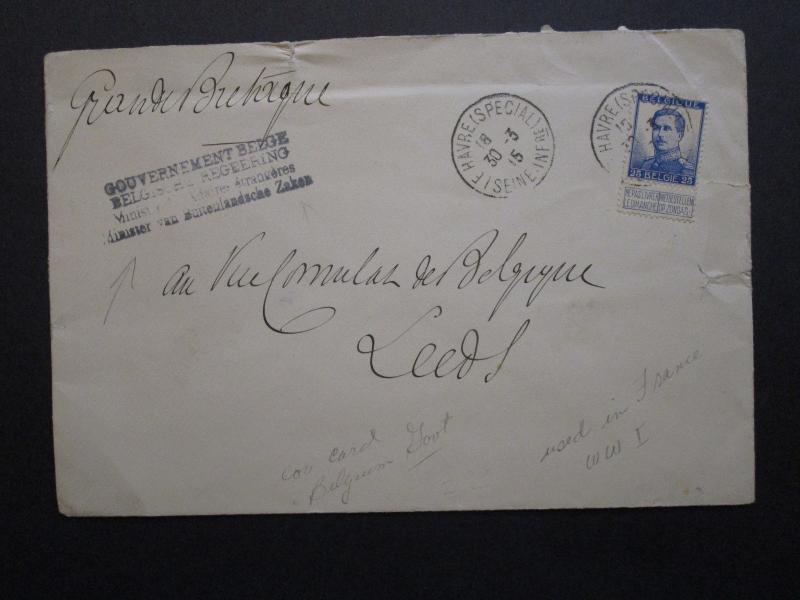 Grande Bretagne
GOUVERNEMENT BELGE
BELGISCHE REGEERING
Ministère Affaires étrangères
Minister van Buitenlandsche Zaken
HAVRE (SPECIAL) (SEINE INFRE)
18
30 -3
15
HAVRE (SPE
BELGIQUE
25 BELGIE 25
NE PAS LIVRER NIET BESTELLEN
LE DIMANCHE OP ZONDAG
au Vice Consulat de Belgique
Leeds
cov card
Belgium Govt
used in France
WW I